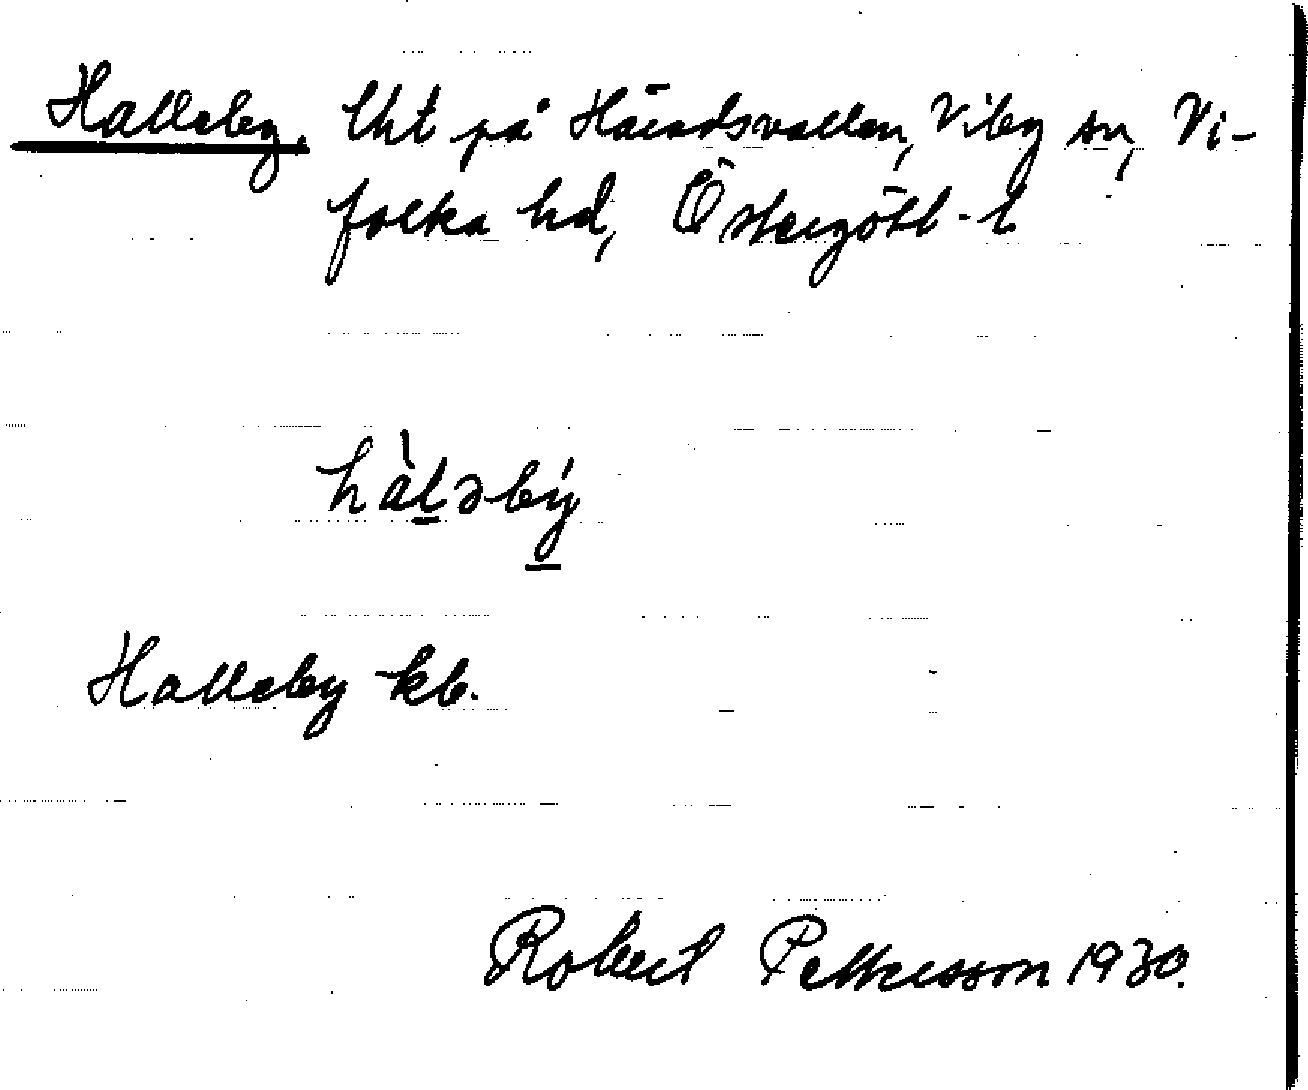 Halleby. Uht på Häradsvallen, Viby sn, Vi-
folka hd, Östergötl. l
hàlǝbý
Halleby kb.
Robert Pettersson 1930.